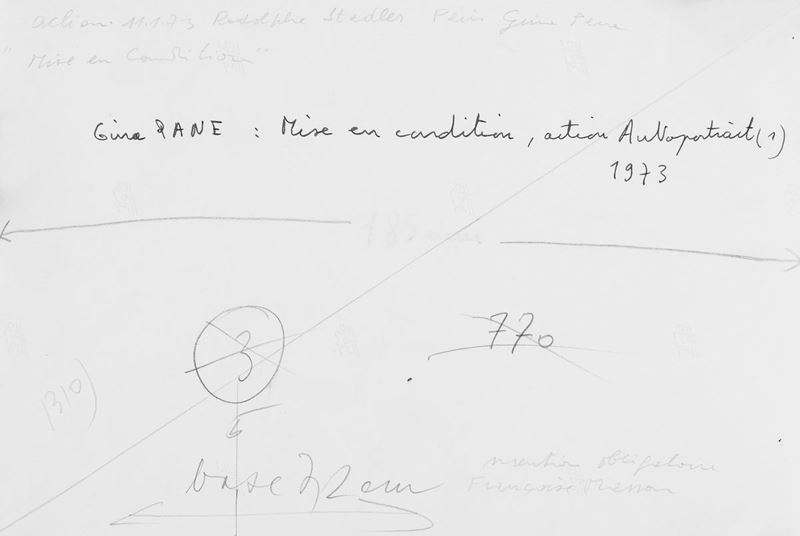 action 11.1.73 Rodolphe Stadler Paris Gina Pane
"Mise en Condition"
Gina PANE : Mise en condition, action Autoportrait(1)
1973
185 mm
3
770
310)
base
mention obligatoire
Françoise Masson